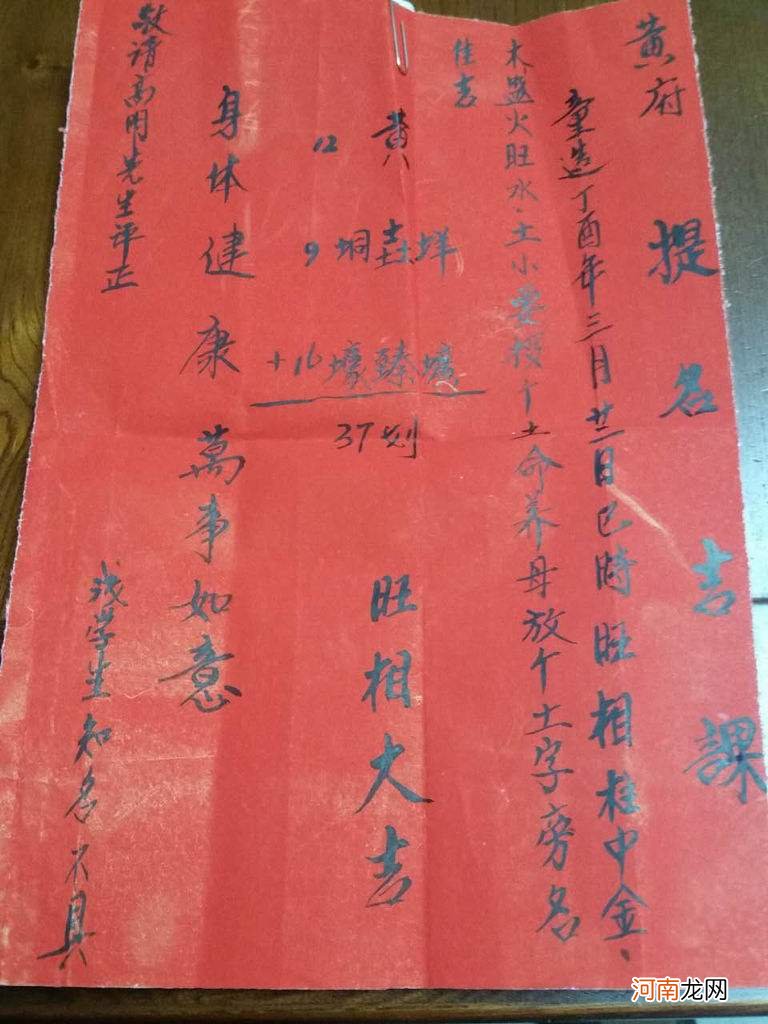 黄府
提名吉課
童造丁酉年三月廿二日巳時旺相柱中金、
木盛火旺水、土小要授个土命养母放个土字旁名
佳吉
黄
12
9 垌壵垟
+16 壕臻壙
37划
旺相大吉
身体健康萬事如意
敬请高明先生评正
浅学生知名不具
河南龙网